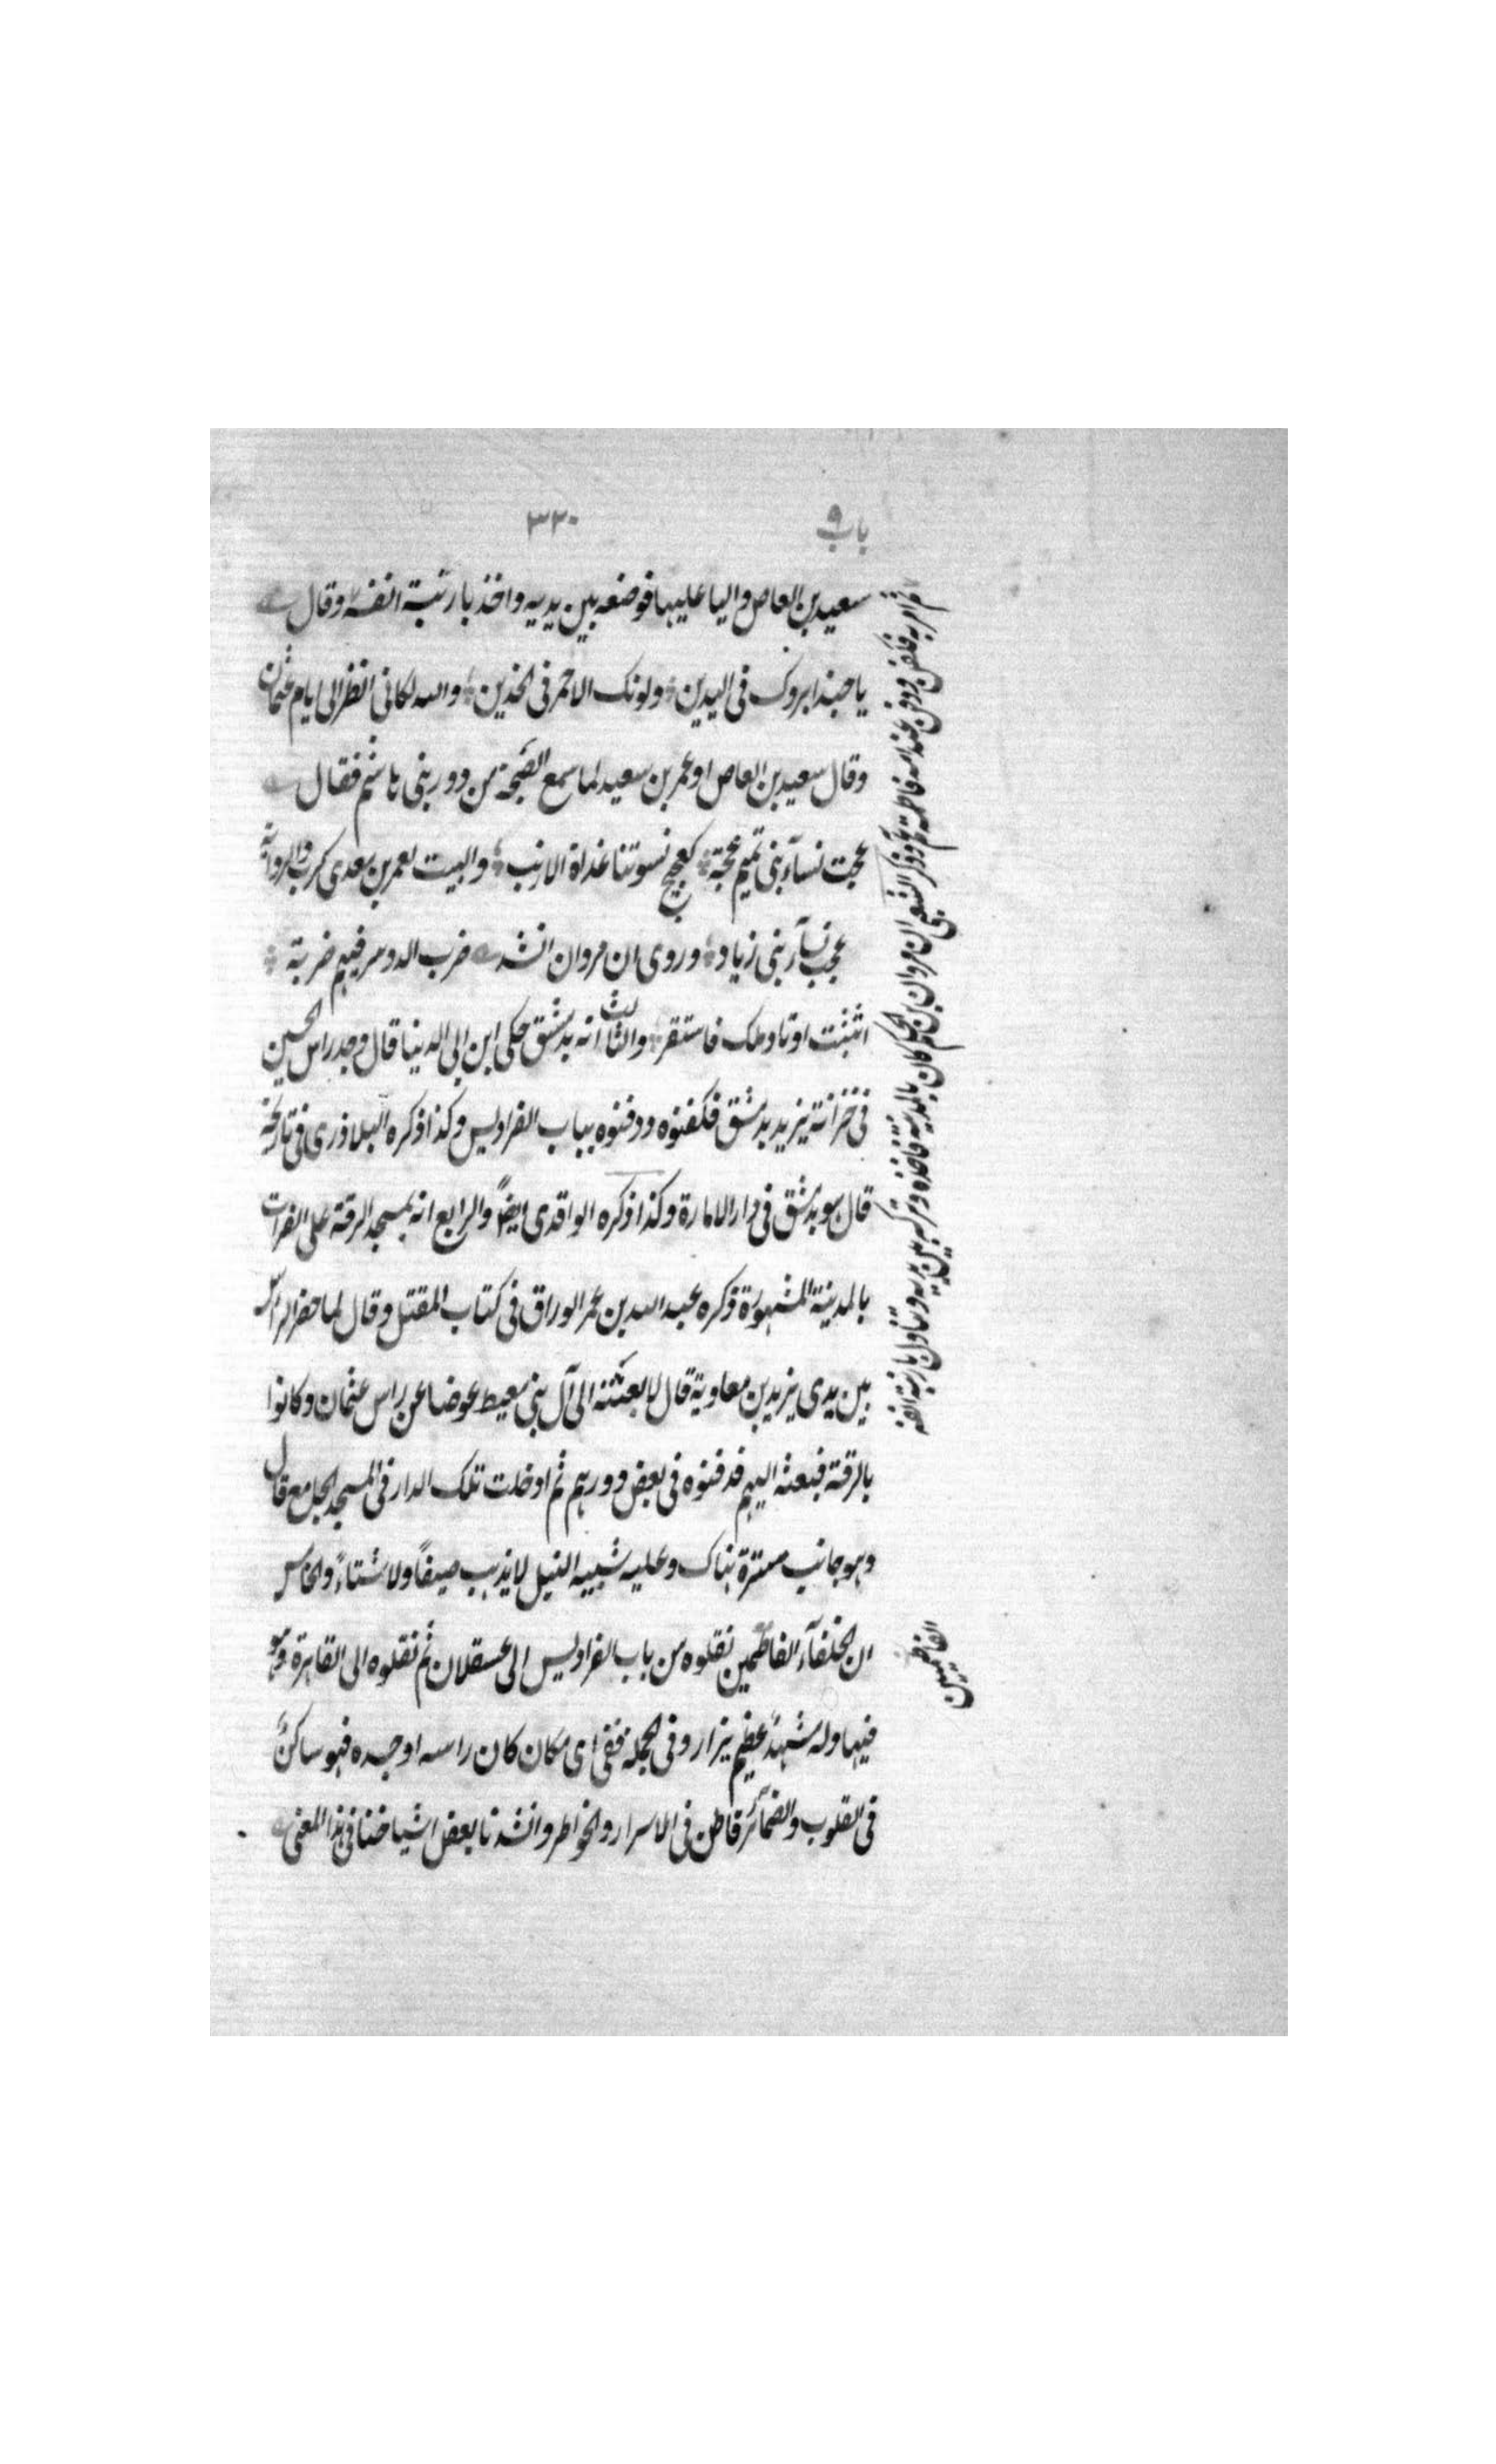 باب ٩
٣٣٠
سعيد بن العاص واليا عليها فوضعه بين يديه واخذ بارنبة انفه وقال
يا حبذا بروك فى اليدين ولونك الاحمر فى الخدين والله لكانى انظر الى ايام عثمان
وقال سعيد بن العاص او عمر بن سعيد لما سمع الضجة من دور بنى هاشم فقال
عجت نسآء بنى تميم عجة كعجيج نسوتنا غداة الارنب والبيت لعمر بن معدى كرب والرواية
عجب نسآء بنى زياد وروى ان مروان انشد ضرب الدوسر فيهم ضربة
اثبتت اوتاد ملك فاستقر والثالث انه بدمشق حكى ابن ابى الدنيا قال وجد راس الحسين
فى خزانة يزيد بدمشق فكفنوه ودفنوه بباب الفراديس وكذا ذكره البلاذرى فى تاريخه
قال هو بدمشق فى دار الامارة وكذا ذكره الواقدى ايضاً والرابع انه بمسجد الرقة على الفرات
بالمدينة المشهورة ذكره عبد الله بن عمر الوراق فى كتاب المقتل وقال لما حضر الراس
بين يدى يزيد بن معاوية قال لابعثنه الى آل بنى معيط عوضا عن راس عثمان وكانوا
بالرقة فبعثه اليهم فدفنوه فى بعض دورهم ثم ادخلت تلك الدار فى المسجد الجامع قال
وهو جانب سترة هناك وعليه شبيه النيل لا يذهب صيفاً ولا شتاءً والخامس
ان الخلفآء الفاطمين نقلوه من باب الفراديس الى عسقلان ثم نقلوه الى القاهرة وهو
فيها وله مشهد عظيم يزار وفى الجملة ففى اى مكان كان راسه او جسده فهو ساكن
فى القلوب والضمآئر قاطن فى الاسرار والخواطر وانشدنا بعض اشياخنا فى هذا المعنى
ثم امر به فكفن ودفن عند امه فاطمة وذكر الشعبى ان مروان بن الحكم كان بالمدينة فاخذه وتركه بين يديه وتناول بارنبة انفه
الفاطميين